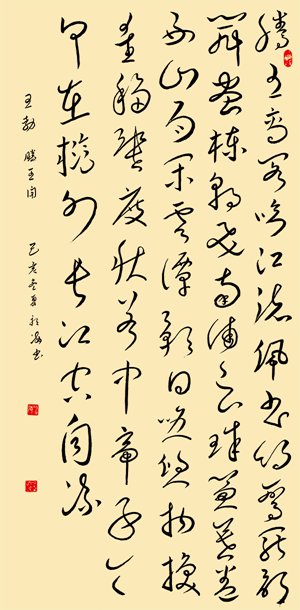 滕王高阁临江渚佩玉鸣鸾罢歌
舞画栋朝飞南浦云珠帘暮卷
西山雨闲云潭影日悠悠物换
星移几度秋阁中帝子今
何在槛外长江空自流
王勃 滕王阁 己亥冬 书